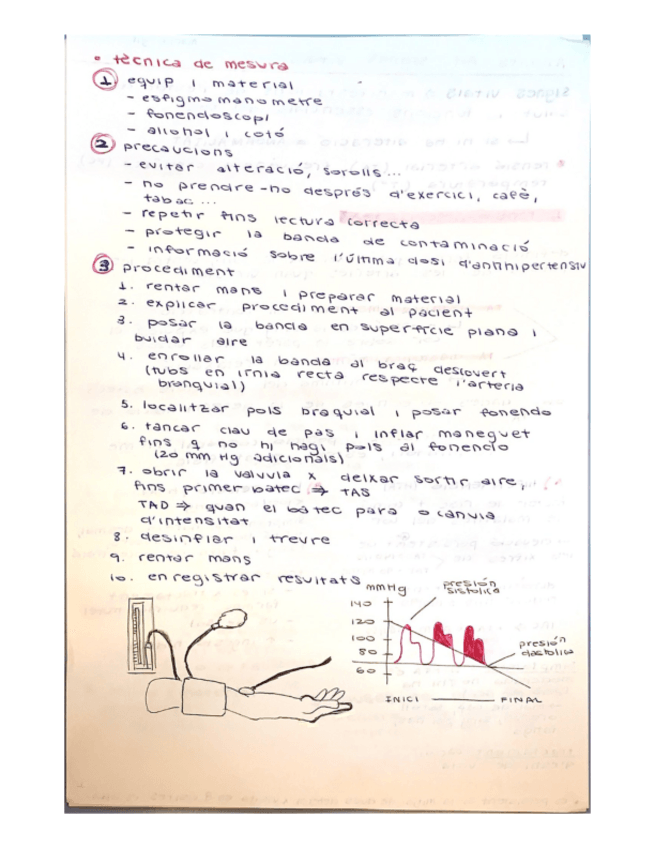 • tècnica de mesura
1 equip i material
- esfigmomanometre
- fonendoscopi
- alcohol i cotó
2 precaucions
- evitar alteració, sorolls...
- no prendre-no després d'exercici, cafè,
tabac...
- repetir fins lectura correcta
- protegir la banda de contaminació
- informació sobre l'última dosi d'antihipertensiu
3 procediment
1. rentar mans i preparar material
2. explicar procediment al pacient
3. posar la banda en superfície plana i
buidar aire
4. enrollar la banda al braç descovert
(tubs en línia recta respecte l'arteria
branquial)
5. localitzar pols braquial i posar fonendo
6. tancar clau de pas i inflar maneguet
fins q no hi hagi pols al fonendo
(20 mm Hg adicionals)
7. obrir la valvula x deixar sortir aire,
fins primer batec ⇒ TAS
TAD ⇒ quan el batec para o canvia
d'intensitat
8. desinflar i treure
9. rentar mans
10. enregistrar resultats
mmHg
presión
sistolica
140
120
100
80
60
presión
diastolica
INICI ——— FINAL